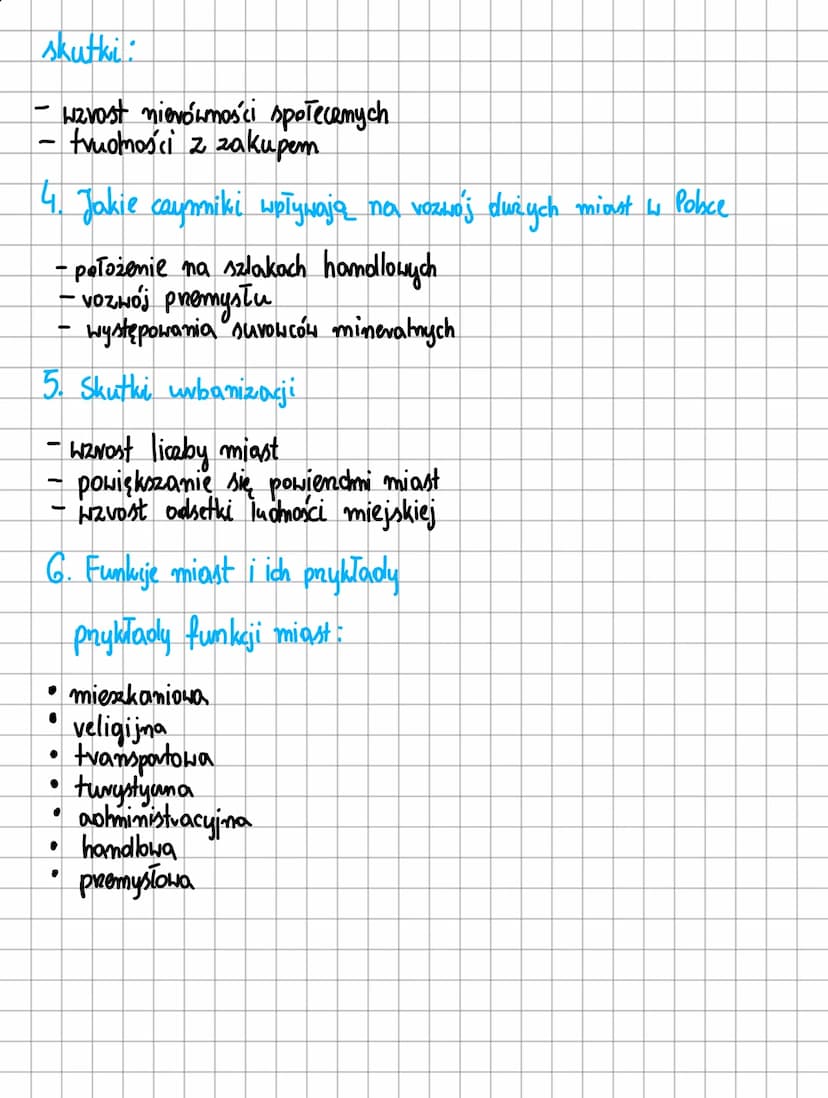 skutki:
- wzrost nierówności społecznych
- trudności z zakupem
4. Jakie czynniki wpływają na rozwój dużych miast w Polsce
- położenie na szlakach handlowych
- rozwój przemysłu
- występowania surowców mineralnych
5. Skutki urbanizacji
- wzrost liczby miast
- powiększanie się powierzchni miast
- wzrost odsetki ludności miejskiej
6. Funkcje miast i ich przykłady
przykłady funkcji miast:
• mieszkaniowa
• religijna
• transportowa
• turystyczna
• administracyjna
• handlowa
• przemysłowa